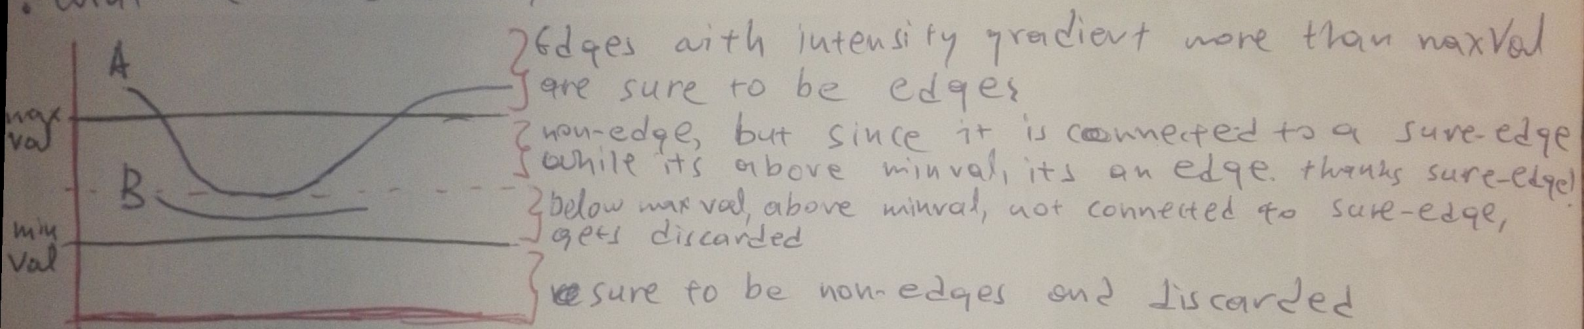 A
Edges with intensity gradient more than maxVal
are sure to be edges
max
val
non-edge, but since it is connected to a sure-edge
while its above minval, its an edge. thanks sure-edge!
B
below max val, above minval, not connected to sure-edge,
gets discarded
min
val
sure to be non-edges and discarded